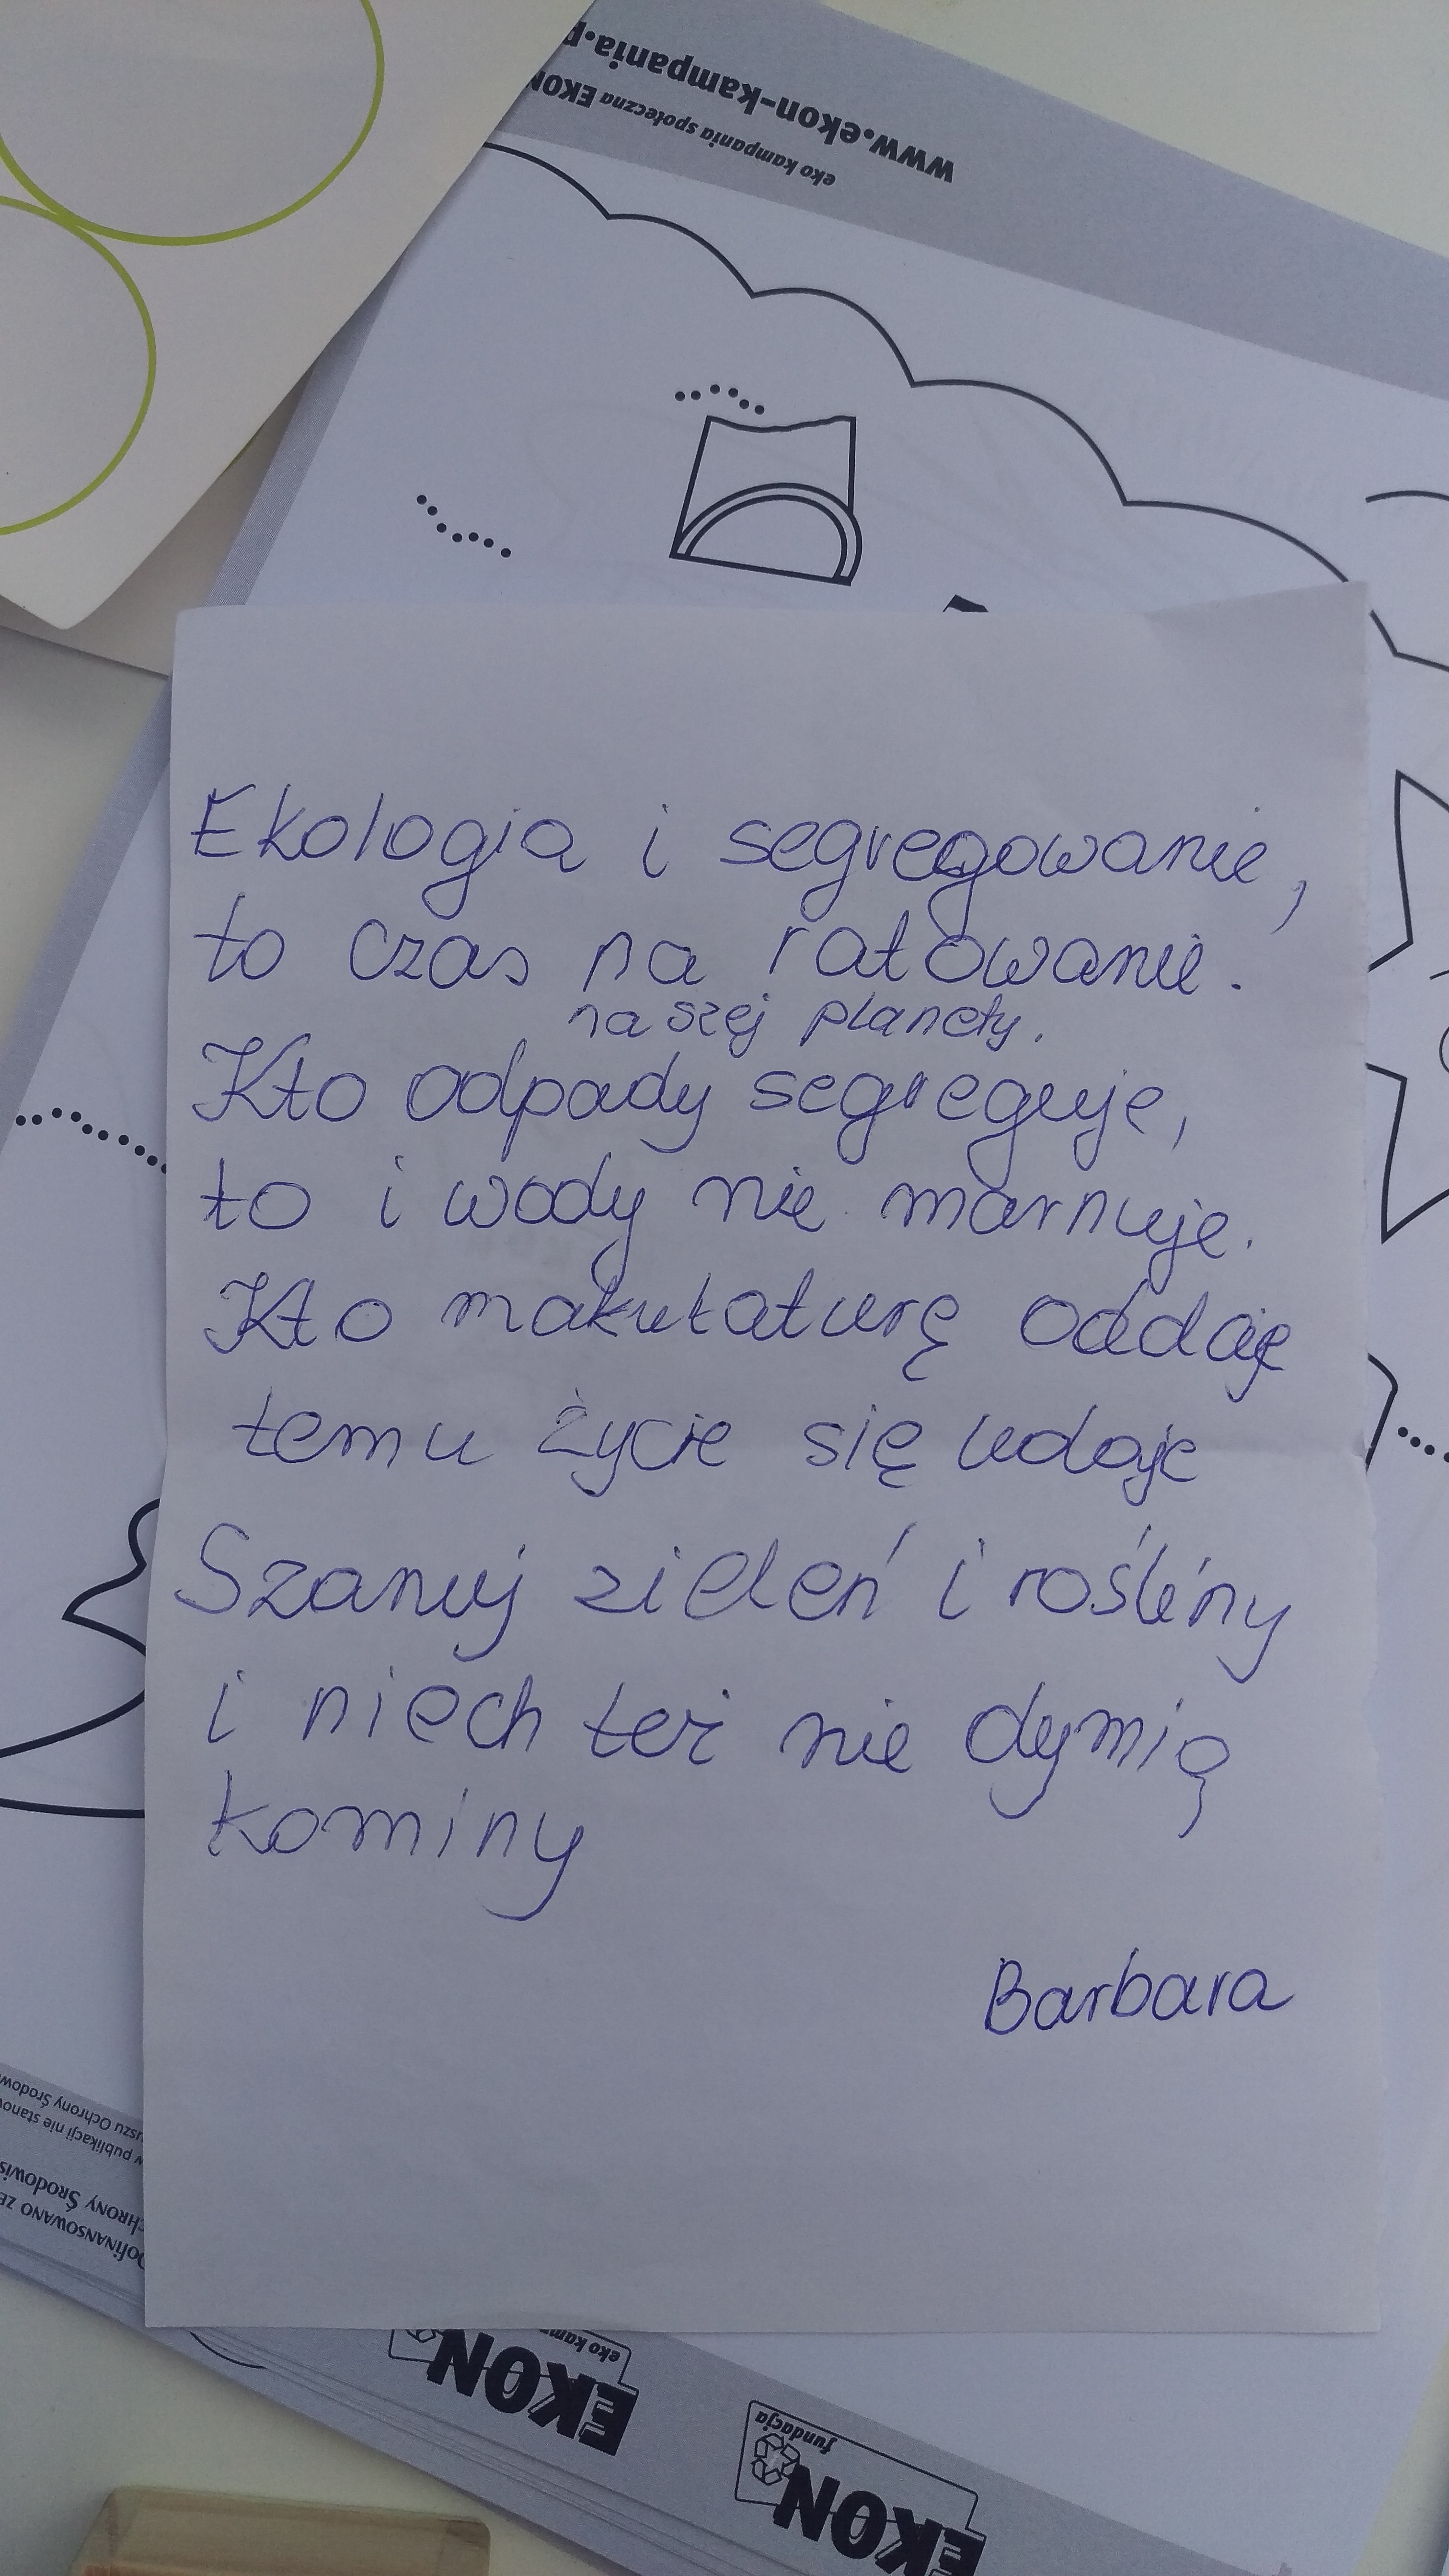 www.ekon-kampania.p
eko kampania społeczna EKON
Ekologia i segregowanie,
to czas na ratowanie.
naszej planety.
Kto odpady segreguje,
to i wody nie marnuje.
Kto makulaturę oddaje
temu życie się udaje
Szanuj zieleń i rośliny
i niech też nie dymią
kominy
Barbara
DOFINANSOWANO ZE
CHRONY ŚRODOWIS
w publikacji nie stanow
uszu Ochrony Środow
EKON
eko kamp
fundacja
EKON